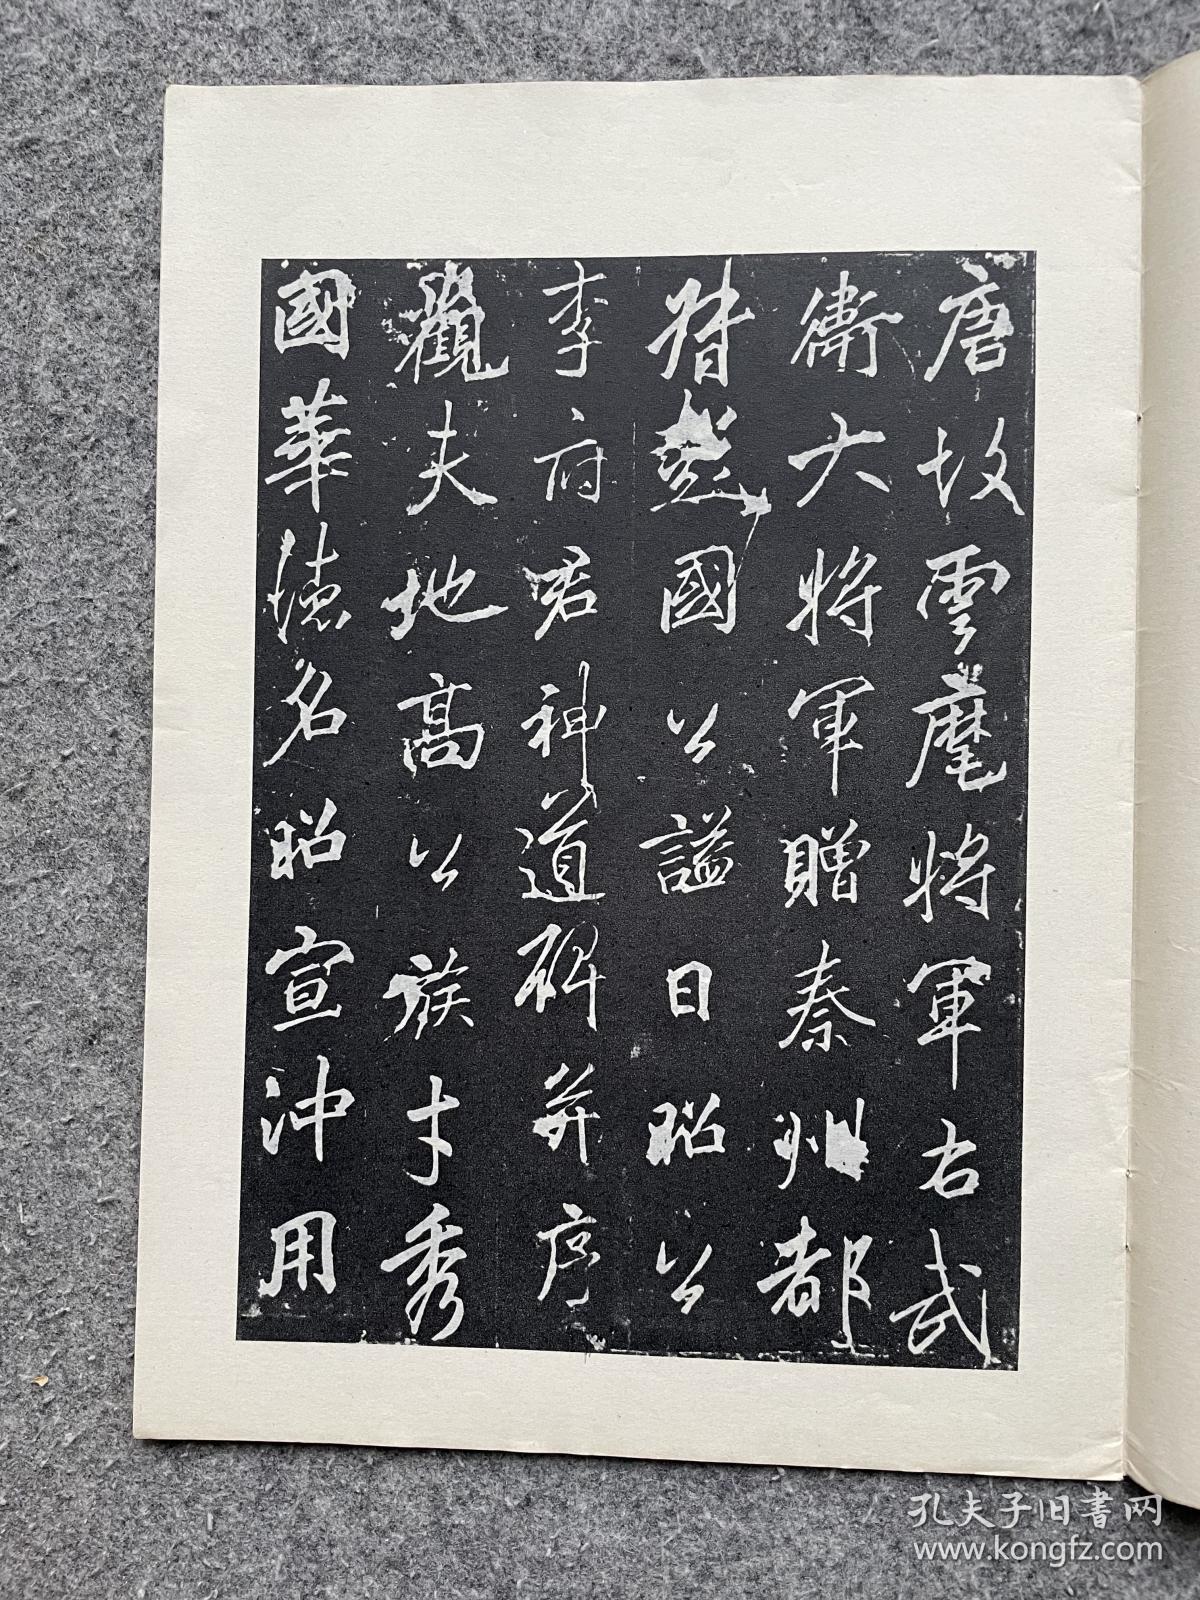 唐故雲麾將軍右武
衛大將軍贈秦州都
督彭國公謚曰昭公
李府君神道碑并序
觀夫地高公族才秀
國華德名昭宣沖用
孔夫子旧書网
www.kongfz.com